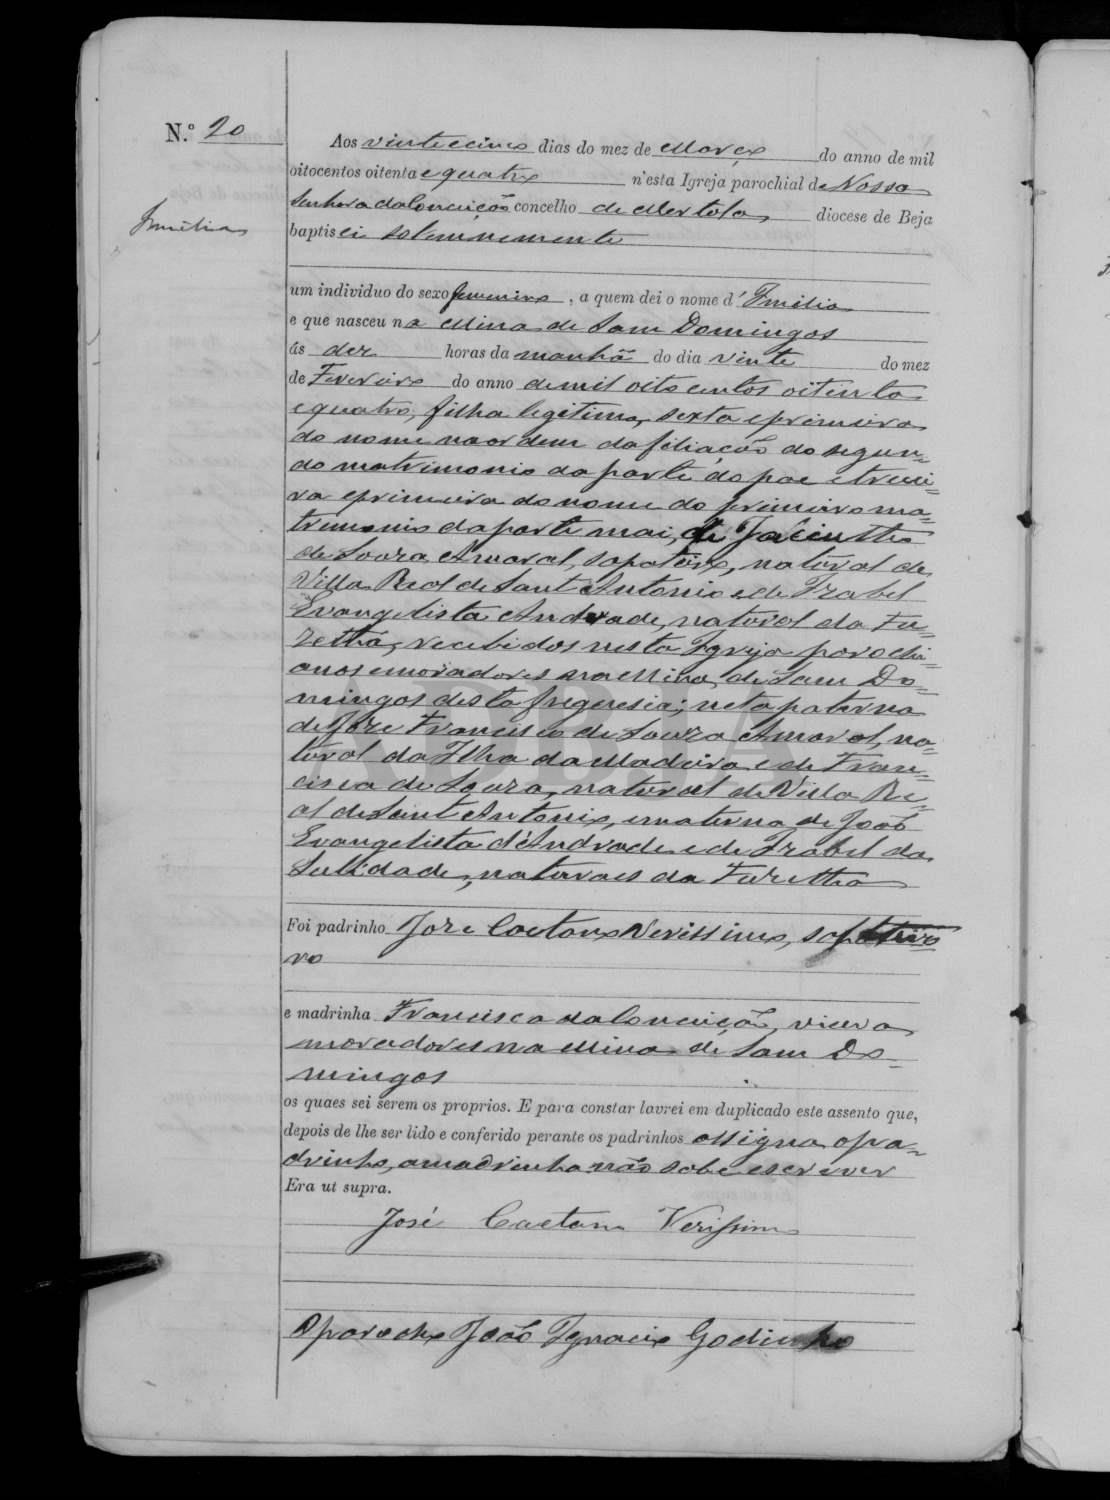 N.º 20
Aos vinte e cinco dias do mez de Março do anno de mil
oitocentos oitenta e quatro n'esta Igreja parochial de Nossa
Senhora da Conceição concelho de Mertola diocese de Beja
Emilia
baptisei solemnemente
um individuo do sexo femenino, a quem dei o nome d' Emilia
e que nasceu na Mina de Sam Domingos
ás dez horas da manhã do dia vinte do mez
de Fevereiro do anno de mil oito centos oitenta
e quatro, filha legitima, sexta e primeira
do nome na ordem da filiação do segun=
do matrimonio da parte do pae e tercei=
ra e primeira do nome do primeiro ma=
trimonio da parte mai, de Jacintho
de Souza Amaral, sapateiro, natural de
Villa Real de Sant Antonio e de Izabel
Evangelista Andrade, natural da Fu=
zetha, recebidos nesta Igreja parochi=
anos e moradores na Mina de Sam Do=
mingos desta freguesia; neta paterna
de Jose Francisco de Souza Amaral, na=
tural da Ilha da Madeira e de Fran=
cisca de Souza, natural de Villa Re=
al de Sant Antonio, e materna de João
Evangelista d'Andrade e de Izabel da
Sulidade, naturaes da Fuzetha
Foi padrinho Jose Caetano Verissimo, sapateiro
ro
e madrinha Francisca da Conceição, viuva
moradores na Mina de Sam Do=
mingos
os quaes sei serem os proprios. E para constar lavrei em duplicado este assento que,
depois de lhe ser lido e conferido perante os padrinhos assigna o pa=
drinho, a madrinha não sabe escrever
Era ut supra.
José Caetano Verissimo
O parocho João Ignacio Godinho